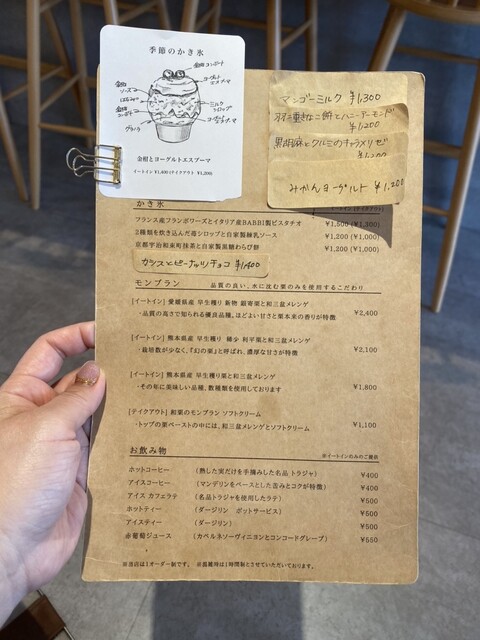 季節のかき氷
金柑コンポート
ヨーグルト
エスプーマ
金柑
ソース
はちみつ
ミルク
シロップ
ヨーグルト
エスプーマ
グラノラ
金柑とヨーグルトエスプーマ
イートイン ¥1,400 (テイクアウト ¥1,200)
マンゴーミルク ¥1,300
羽二重きなこ餅とハニーアーモンド
¥1,200
黒胡麻とクルミのキャラメリゼ
¥1,200
みかんヨーグルト ¥1,200
かき氷
フランス産フランボワーズとイタリア産BABBI製ピスタチオ ¥1,500 (¥1,300)
2種類を炊き込んだ苺シロップと自家製練乳ソース ¥1,200 (¥1,000)
京都宇治和束町抹茶と自家製黒糖わらび餅 ¥1,200 (¥1,000)
カシスとピーナッツチョコ ¥1,400
モンブラン 品質の良い、水に沈む栗のみを使用するこだわり
[イートイン] 愛媛県産 早生種り 新物 銀寄栗と和三盆メレンゲ ¥2,400
・品質の高さで知られる優良品種。ほどよい甘さと栗本来の香りが特徴
[イートイン] 熊本県産 早生種り 稀少 利平栗と和三盆メレンゲ ¥2,100
・栽培数が少なく、「幻の栗」と呼ばれ、濃厚な甘さが特徴
[イートイン] 熊本県産 早生種り栗と和三盆メレンゲ ¥1,800
・その年に美味しい品種、数種類を使用しております
[テイクアウト] 和栗のモンブラン ソフトクリーム ¥1,100
・トップの栗ペーストの中には、和三盆メレンゲとソフトクリーム
お飲み物 ※イートインのみのご提供
ホットコーヒー (熟した実だけを手摘みした名品 トラジャ) ¥400
アイスコーヒー (マンデリンをベースとした苦みとコクが特徴) ¥400
アイス カフェラテ (名品トラジャを使用したラテ) ¥500
ホットティー (ダージリン ポットサービス) ¥500
アイスティー (ダージリン) ¥500
赤葡萄ジュース (カベルネソーヴィニヨンとコンコードグレープ) ¥550
※当店は1オーダー制です。 ※混雑時は1時間制とさせていただいております。